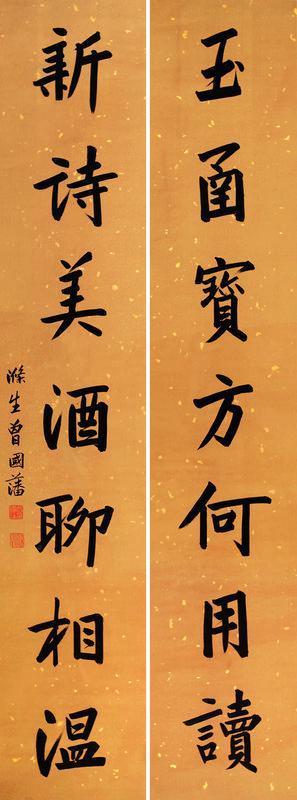 玉函寶方何用讀
新詩美酒聊相溫
滌生曾國藩